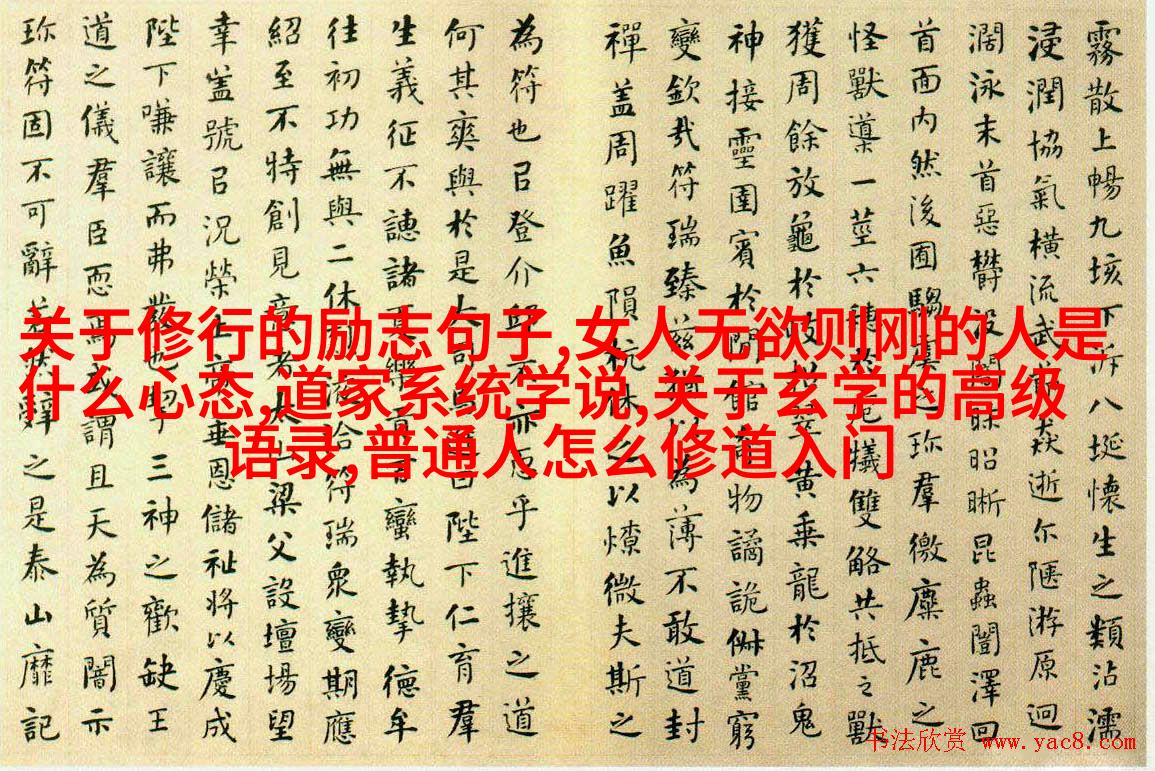 关于修行的励志句子,女人无欲则刚的人是
什么心态,道家系统学说,关于玄学的高级
语录,普通人怎么修道入门
霧散上暢九垓下泝八埏懷生之類沾濡
浸潤協氣橫流武猋逝尔陿游原迥
濶泳末首惡欝没闇昧昭晰昆蟲闓澤回
首面内然後囿騶虞之珍羣徼麋鹿之
怪獸導一莖六穗於庖犧雙觡共抵之獸
獲周餘放龜於招翠黄乗龍於沼鬼
神接靈圉賓於閒館奇物譎詭俶黨窮
變欽哉符瑞臻兹猶以為薄不敢道封
禪盖周躍魚隕杭休之以燎微夫斯之
為符也㠯登介邱不亦恧乎進攘之道
何其爽與於是大司馬進曰陛下仁育羣
生義征不譓諸夏樂貢百蠻執摯德牟
往初功無與二休烈浹洽符瑞衆變期應
紹至不特創見意者太山梁父設壇場望
幸盖號㠯况榮上帝垂恩儲祉將以慶成
陛下嗛讓而弗發也挈三神之歡缺王
道之儀羣臣恧焉或謂且天為質闇示
珍符固不可辭若然辭之是泰山靡記
书法欣赏 www.yac8.com